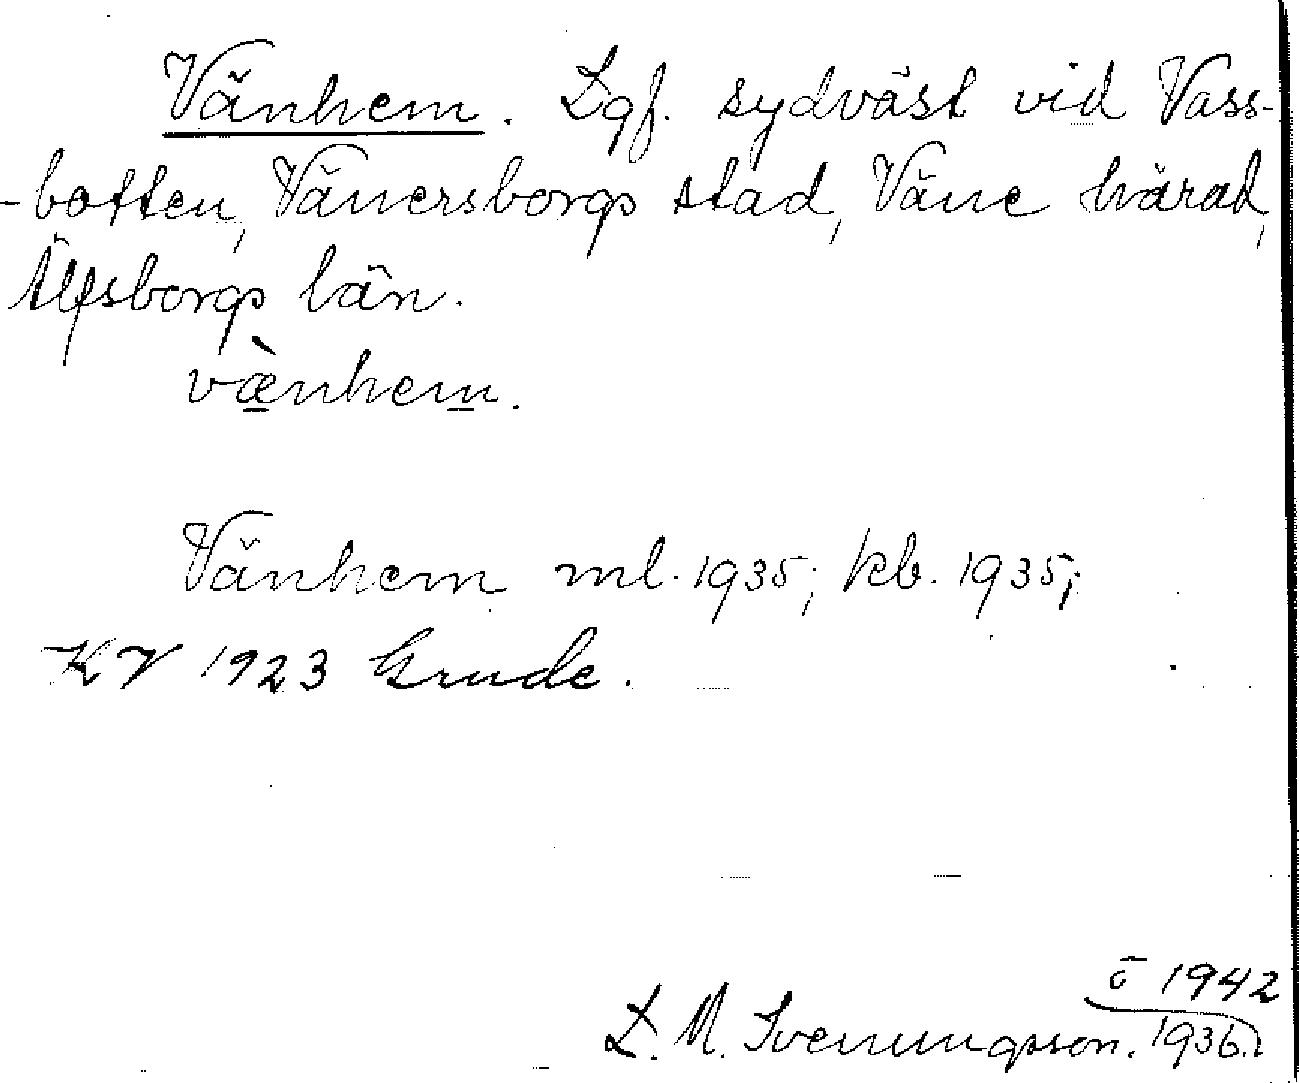 Vänhem. Lgf. sydväst vid Vass-
-botten, Vänersborgs stad, Väne härad,
Älfsborgs län.
væ̀nhem.
Vänhem ml. 1935; kb. 1935;
KV 1923 Grude.
ö 1942
L. M. Svenungsson. 1936.